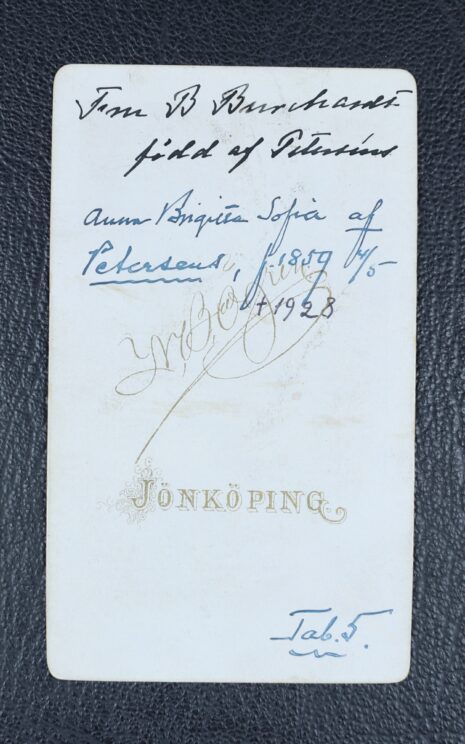 Fru B Burchardt
född af Petersens
Anna Brigitta Sofia af
Petersens, f. 1859 4/5
† 1928
JÖNKÖPING
Tab. 5.